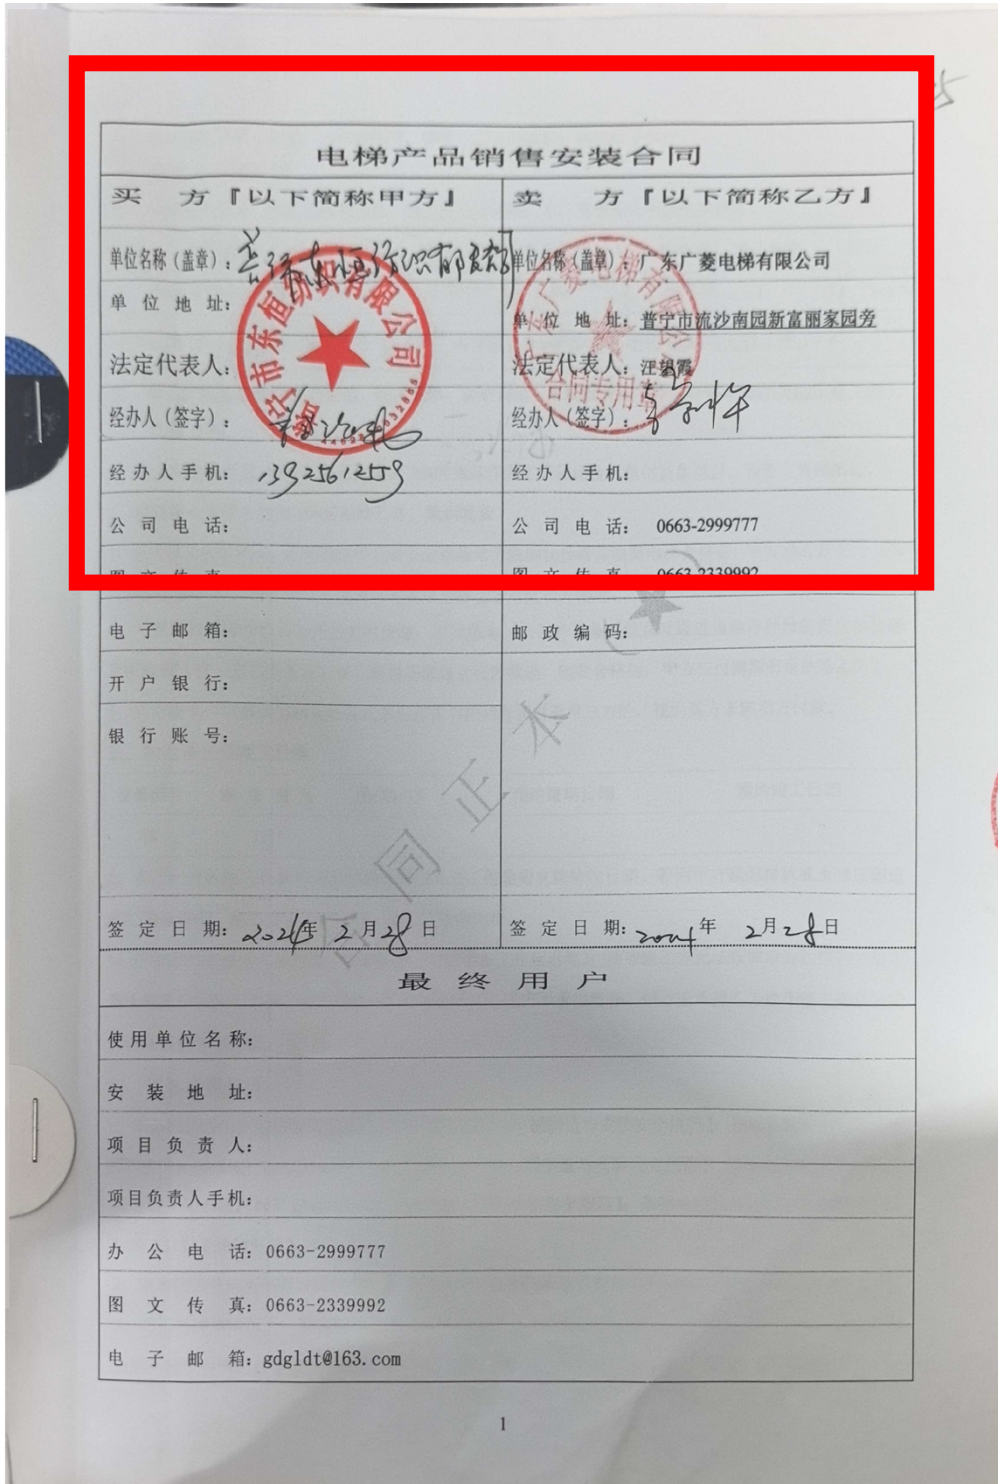 电梯产品销售安装合同
买 方『以下简称甲方』 卖 方『以下简称乙方』
单位名称(盖章): 普宁市东恒纺织有限公司 单位名称(盖章): 广东广菱电梯有限公司
单 位 地 址: 单 位 地 址: 普宁市流沙南园新富丽家园旁
法定代表人: 法定代表人: 汪望霞
合同专用章
经办人(签字): 经办人(签字):
经办人手机: 13925612559 经办人手机:
公 司 电 话: 公 司 电 话: 0663-2999777
图 文 传 真 图 文 传 真 0663-2339992
电 子 邮 箱: 邮 政 编 码:
开 户 银 行:
银 行 账 号:
合同正本
签 定 日 期: 2024年 2月28日 签 定 日 期: 2024年 2月28日
最 终 用 户
使用单位名称:
安 装 地 址:
项 目 负 责 人:
项目负责人手机:
办 公 电 话: 0663-2999777
图 文 传 真: 0663-2339992
电 子 邮 箱: gdgldt@163.com
1